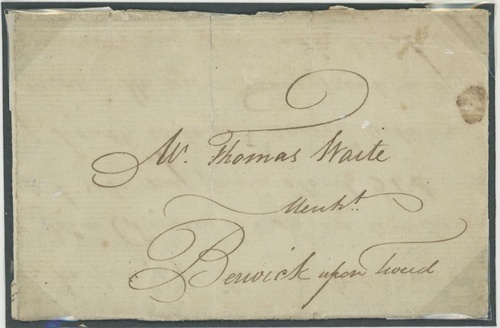 Mr. Thomas Waite
Mercht.
Berwick upon Tweed